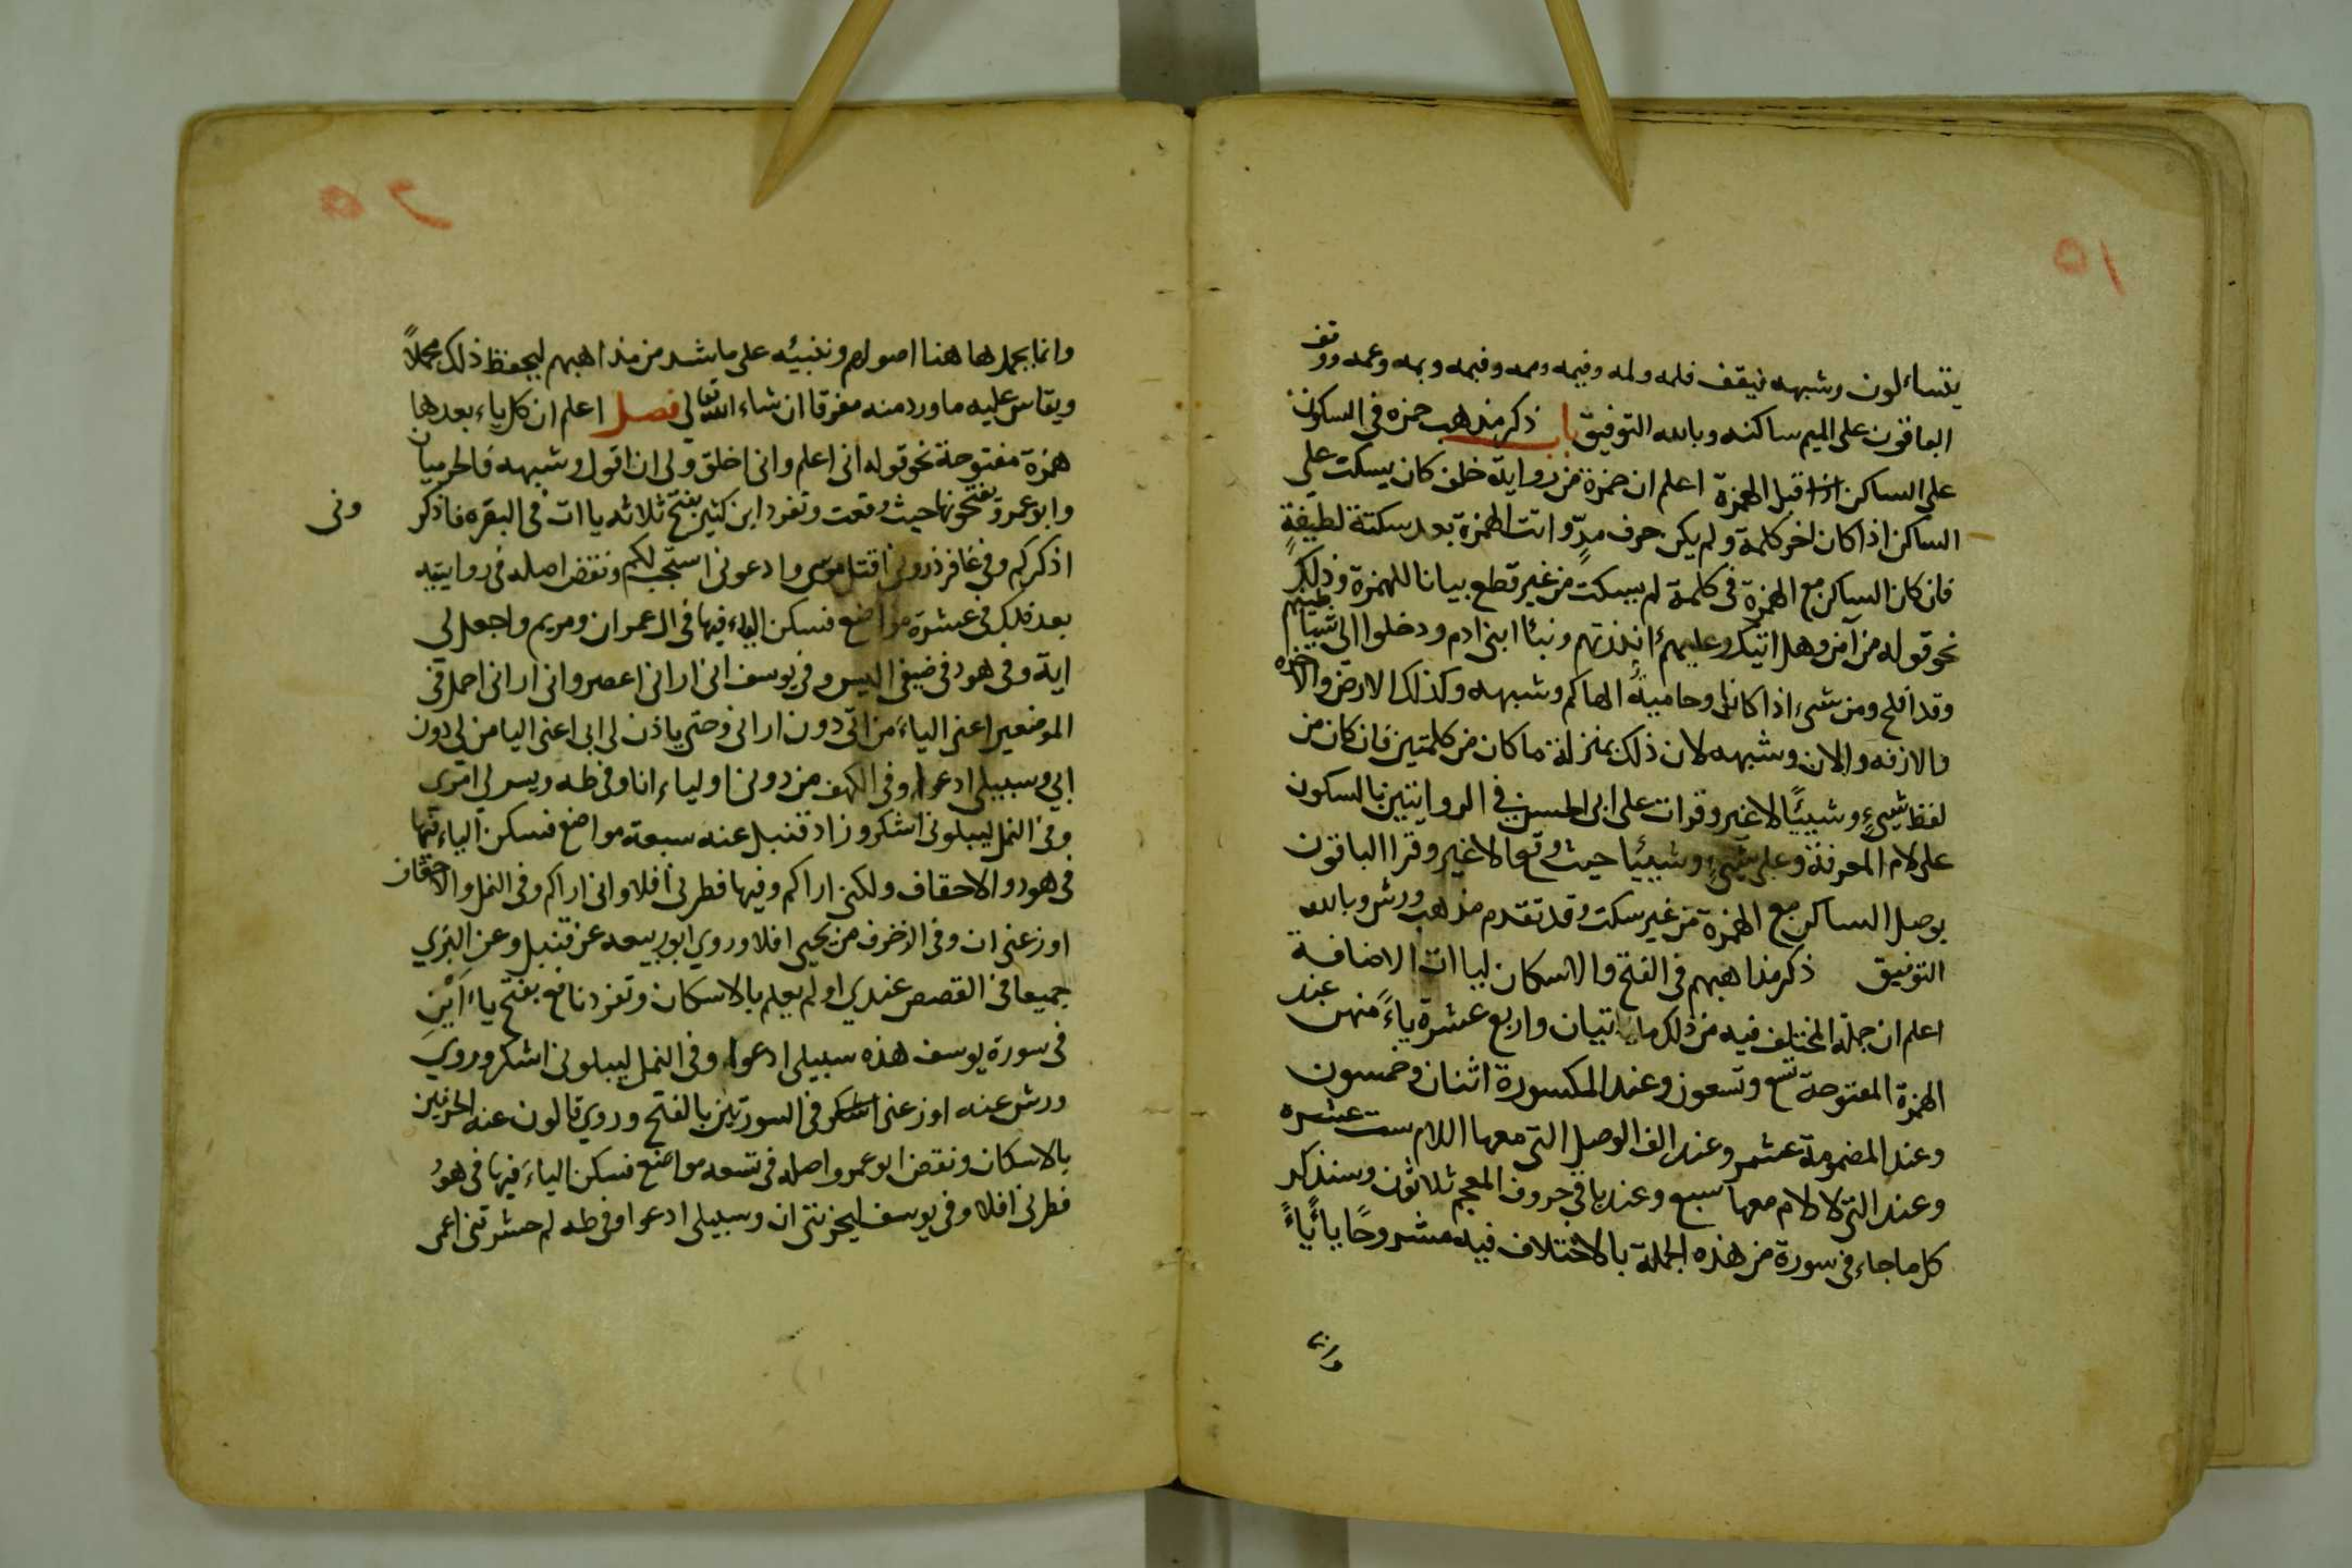 ١٥
يتساءلون وشبهه فيقف فلمه ولمه وفيمه وممه وفبمه وبمه وعمه ووقف
الباقون على الميم ساكنه وبالله التوفيق باب ذكر مذهب حمزه في السكون
على الساكن اذا قبل الهمزة اعلم ان حمزة من رواية خلف كان يسكت على
الساكن اذا كان اخر كلمة ولم يكن حرف مدّ واتت الهمزة بعد سكتة لطيفةً
فان كان الساكن مع الهمزة في كلمة لم يسكت من غير قطع بيانا للهمزة وذلك
نحو قوله من آمن وهل اتيك وعليهمء انذرتهم ونبئا ابنى ادم ودخلوا الى شياطينهم
وقد افلح ومن شىء اذا كانوا وحاميةٌ الهاكم وشبهه وكذلك الارض والاخره
والازفه والان وشبهه لان ذلك بمنزلة ما كان من كلمتين فان كان من
لفظ شىءٍ وشيئًا لا غير وقرات على ابى الحسن في الروايتين بالسكون
على لام المعرفة وعلى شىءٍ وشيئيا حيث وقعا لا غير وقرا الباقون
بوصل الساكن مع الهمزة من غير سكت وقد تقدم مذهب ورش وبالله
التوفيق ذكر مذاهبهم فى الفتح والاسكان لياات الاضافة
اعلم ان جملة المختلف فيه من ذلك مائتيان واربع عشرة ياءً منهن عند
الهمزة المفتوحة تسع وتسعون وعند المكسورة اثنان وخمسون
وعند المضمومة عشر وعند الف الوصل التى معها اللام ست عشره
وعند التى لا لام معها سبع وعند باقى حروف المعجم ثلاثون وسنذكر
كل ما جاء فى سورة من هذه الجملة بالاختلاف فيه مشروحًا ياءً ياءً
وانما
٢٥
وانما بجملها هنا اصولهم وننبئه على ما شد من مذاهبهم ليحفظ ذلك مجملاً
ويقاس عليه ما ورد منه مفرقا ان شاء الله تعالى فصل اعلم ان كل ياء بعدها
همزة مفتوحة نحو قوله انى اعلم وانى اخلق ولى ان اقول وشبهه فالحرميان
وابو عمرو يفتحونها حيث وقعت وتفرد ابن كثير بفتح ثلاثه ياات فى البقره فاذكر ونى
اذكركم وفى غافر ذرونى اقتل موسى وادعونى استجب لكم ونقض اصله فى روايتيه
بعد ذلك فى عشرة مواضع فسكن الياء فيها فى ال عمران ومريم واجعل لى
اية وفى هود فى ضيفى اليس وفى يوسف انى ارانى اعصر وانى ارانى احمل فى
الموضعين اعنى الياءَ من انّى دون ارانى وحتى ياذن لى ابى اعنى اليا من لى دون
ابى وسبيلى ادعوا وفى الكهف من دونى اولياء انا وفى طه ويسر لى امرى
وفى النمل ليبلونى اشكر وزاد قنبل عنه سبعة مواضع فسكن الياء فيها
فى هود والاحقاف ولكنى اراكم وفيها فطرنى افلا وانى اراكم وفى النمل والاحقاف
اوزعنى ان وفى الزخرف من يحيى افلا وروي ابو ربيعه عن قنبل وعن البزي
جميعا فى القصص عندي اولم يعلم بالاسكان وتفرد نافع بفتح ياء اَيْنِ
فى سورة يوسف هذه سبيلى ادعوا وفى النمل ليبلونى اشكر وروي
ورش عنه اوزعنى اشكر فى السورتين بالفتح وروي قالون عنه الحرفين
بالاسكان ونقض ابو عمرو اصله فى تسعه مواضع فسكن الياءَ فيها فى هودُ
فطرنى افلا وفى يوسف ليحزننى ان وسبيلى ادعوا وفى طه لم حشرتنى اعمى